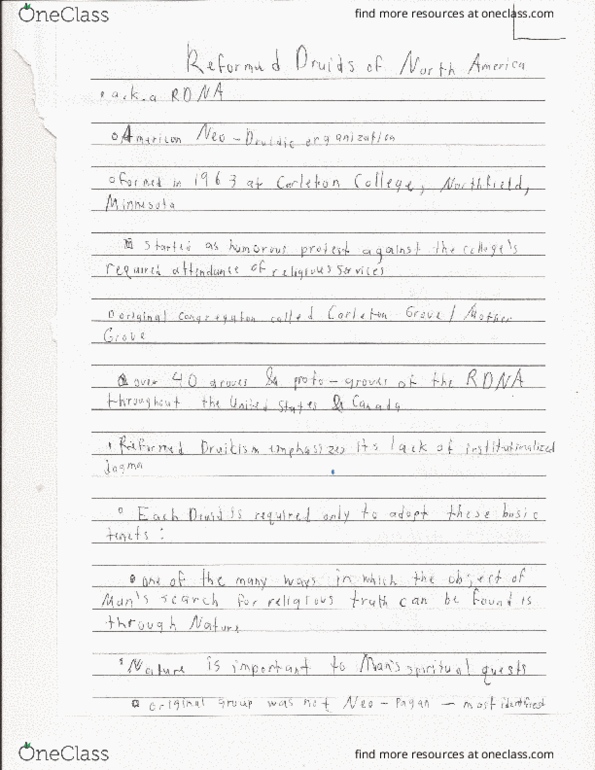 OneClass
find more resources at oneclass.com
Reformed Druids of North America
a.k.a RDNA
American Neo-Druidic organization
formed in 1963 at Carleton College, Northfield,
Minnesota
started as humorous protest against the college's
required attendance of religious services
original congregation called Carleton Grove / Mother
Grove
over 40 groves & proto-groves of the RDNA
throughout the United States & Canada
Reformed Druidism emphasizes its lack of institutionalized
dogma
Each Druid is required only to adopt these basic
tenets:
one of the many ways in which the object of
Man's search for religious truth can be found is
through Nature
Nature is important to Man's spiritual quests
original group was not Neo-Pagan - most identified
OneClass
find more resources at oneclass.com